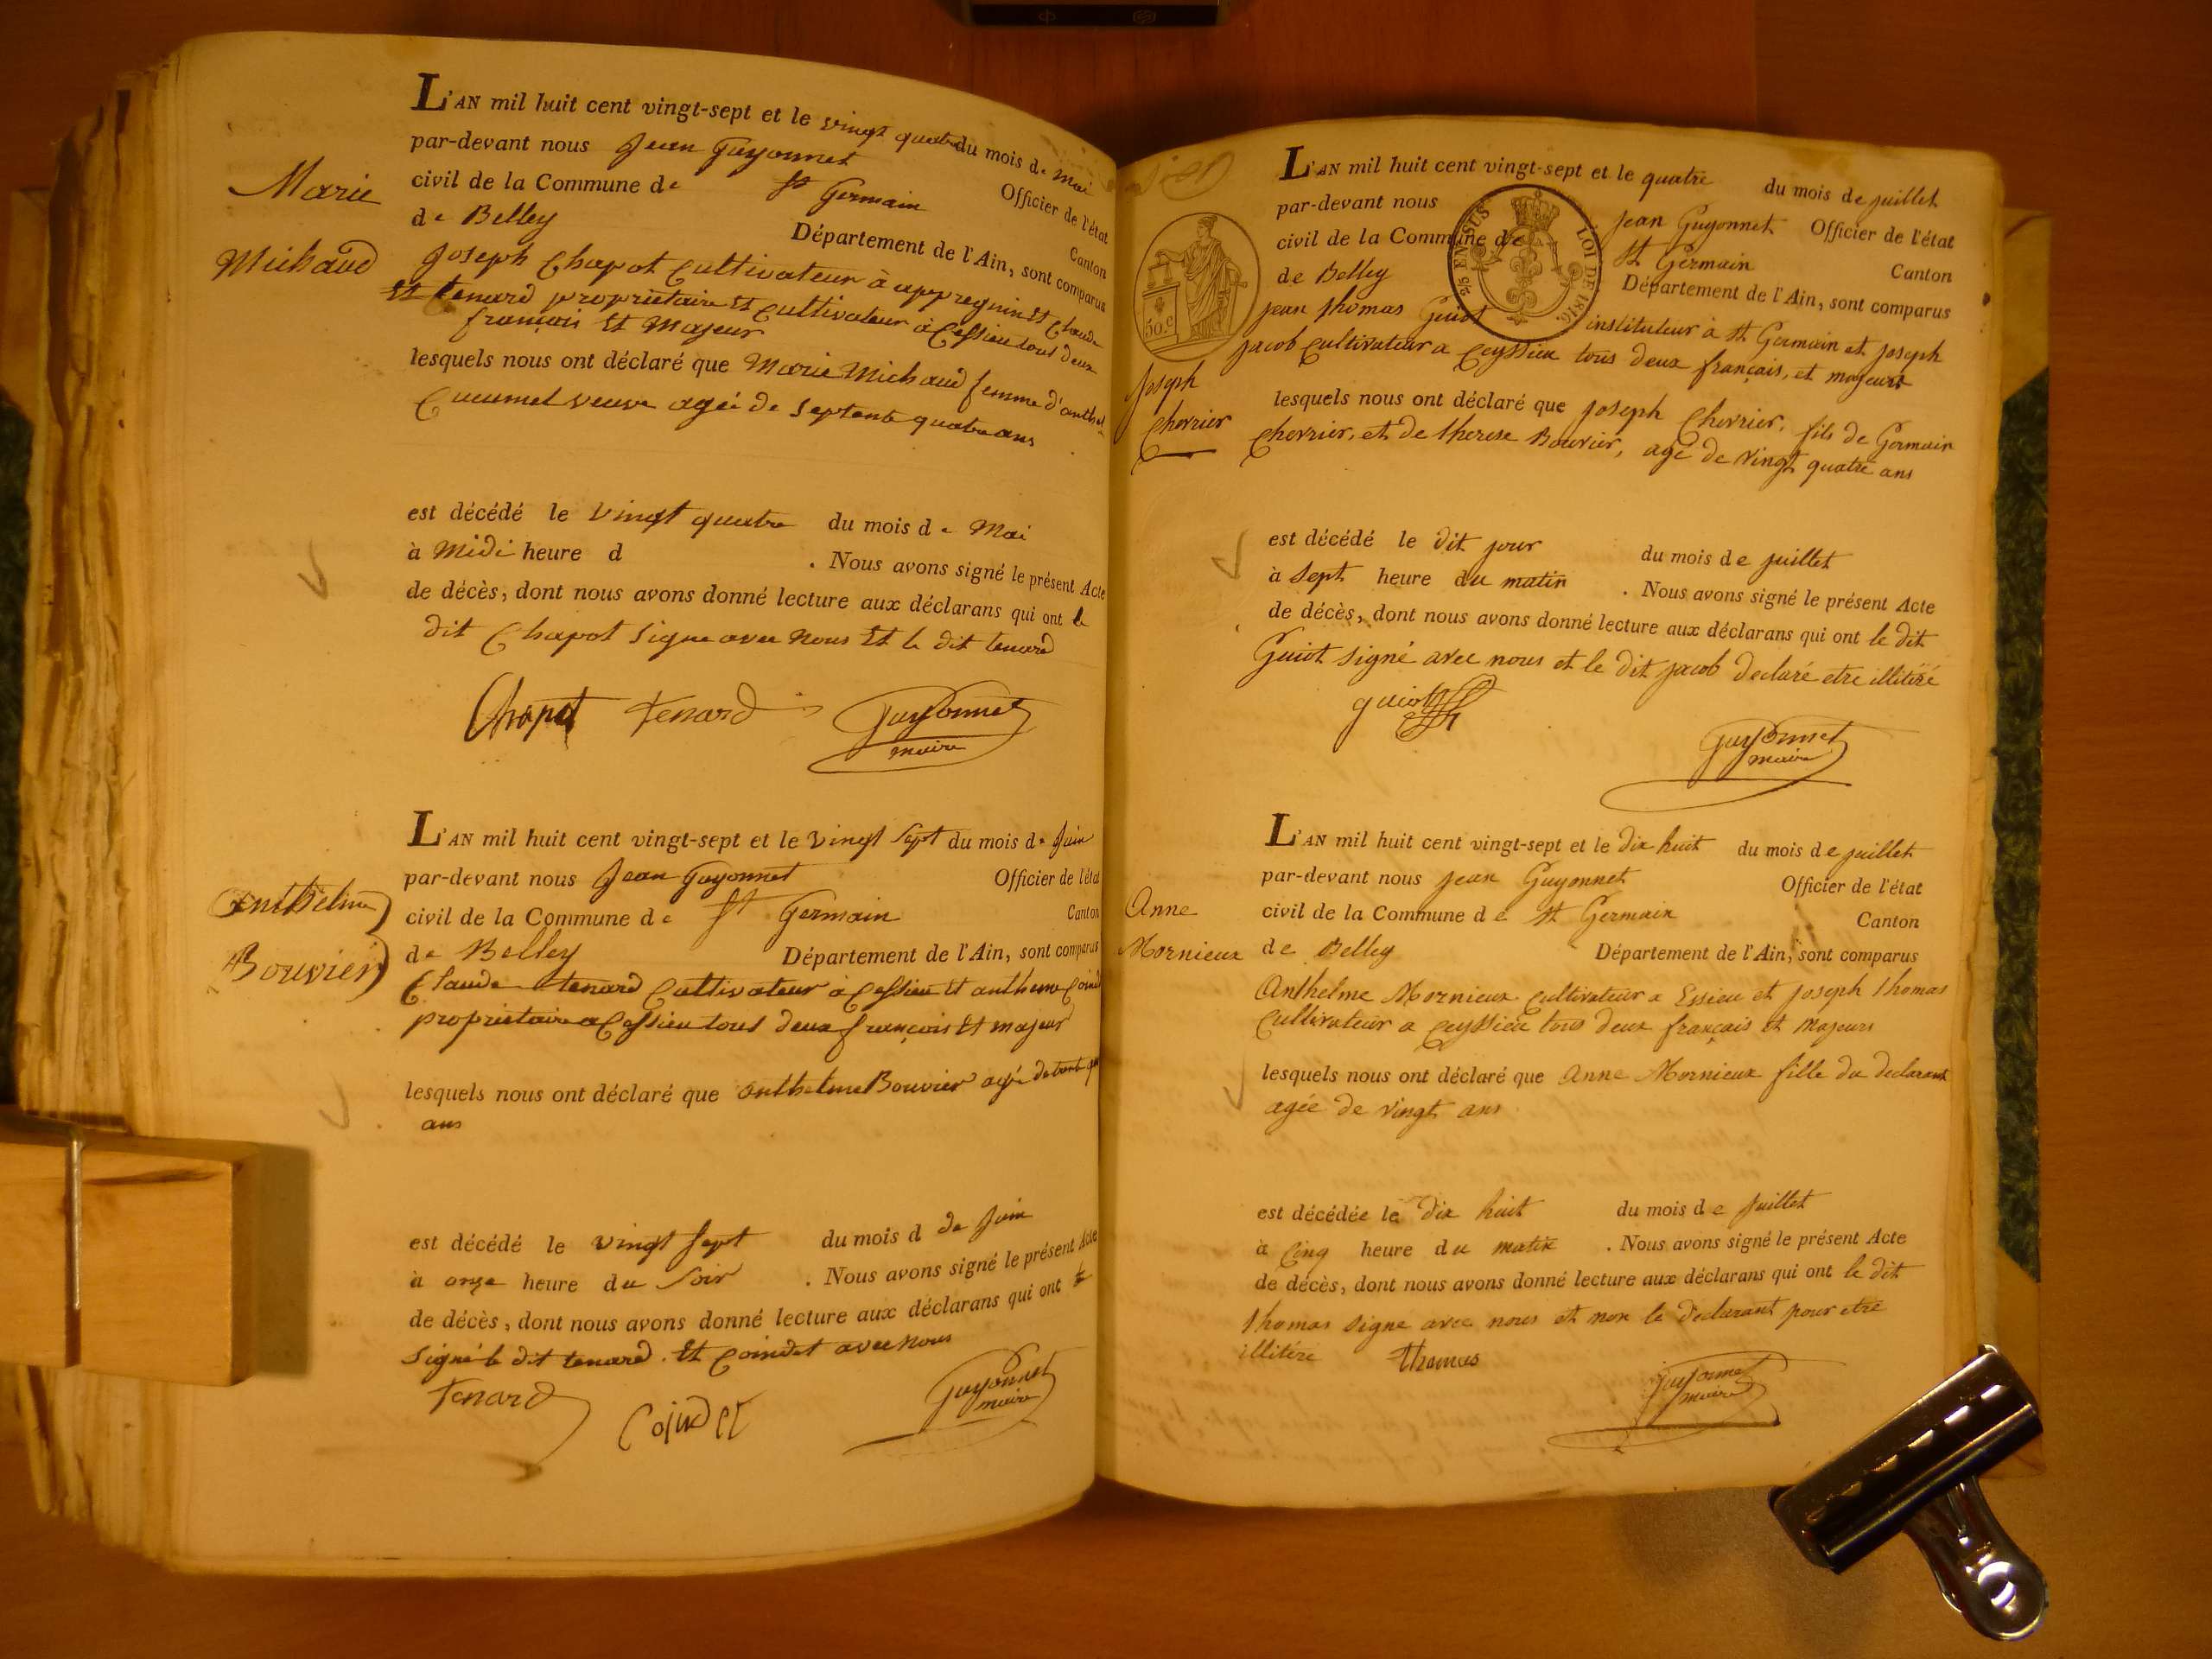 Marie
Michaud
L'AN mil huit cent vingt-sept et le vingt quatre du mois de Mai
par-devant nous Jean Guyonnet
Officier de l'état
civil de la Commune de St Germain
Canton
de Belley
Département de l'Ain, sont comparus
Joseph Chapot Cultivateur à appregnin Et Claude
tenard proprietaire Et Cultivateur à Cessieu tous deux
françois Et Majeur
lesquels nous ont déclaré que Marie Michaud femme d'anthel
Cucumel veuve agée de Septente quatre ans
est décédé le vingt quatre du mois de Mai
à Midi heure d . Nous avons signé le présent Acte
de décès, dont nous avons donné lecture aux déclarans qui ont le
dit Chapot Signe avec nous Et le dit tenard
Chapot Tenard Guyonnet
maire
Anthelme
Bouvier
L'AN mil huit cent vingt-sept et le vingt Sept du mois de Juin
par-devant nous Jean Guyonnet Officier de l'état
civil de la Commune de St Germain Canton
de Belley Département de l'Ain, sont comparus
Claude tenard Cultivateur à Cessieu Et anthelme
proprietaire a Cessieu tous deux françois Et majeur
lesquels nous ont déclaré que anthelme Bouvier agé de
ans
est décédé le vingt Sept du mois d de Juin
à onze heure du Soir . Nous avons signé le présent Acte
de décès, dont nous avons donné lecture aux déclarans qui ont
Signé le dit tenard. Et Coindet avec nous
Tenard Coindet Guyonnet
maire
50.c
Joseph
Chevrier
L'AN mil huit cent vingt-sept et le quatre du mois de juillet
par-devant nous Jean Guyonnet Officier de l'état
civil de la Commune de St Germain Canton
25 EN SUS
LOI DE 1816.
de Belley Département de l'Ain, sont comparus
jean thomas Guiot instituteur à St Germain et joseph
jacob Cultivateur a Ceyssieu tous deux français, et majeurs
lesquels nous ont déclaré que joseph Chevrier, fils de Germain
Chevrier, et de therese Bouvier, agé de vingt quatre ans
est décédé le dit jour du mois de juillet
à Sept heure du matin . Nous avons signé le présent Acte
de décès, dont nous avons donné lecture aux déclarans qui ont le dit
Guiot signé avec nous et le dit jacob declaré etre illitéré
guiot
Guyonnet
maire
Anne
Mornieux
L'AN mil huit cent vingt-sept et le dix huit du mois de juillet
par-devant nous jean Guyonnet Officier de l'état
civil de la Commune de St Germain Canton
de Belley Département de l'Ain, sont comparus
Anthelme Mornieux cultivateur a Essieu et joseph thomas
Cultivateur a Ceyssieu tous deux français et majeurs
lesquels nous ont déclaré que Anne Mornieux fille du declarant
agée de vingt ans
est décédée le dix huit du mois de juillet
à Cinq heure du matin . Nous avons signé le présent Acte
de décès, dont nous avons donné lecture aux déclarans qui ont le dit
thomas signe avec nous et non le declarant pour etre
illitére thomas
Guyonnet
maire